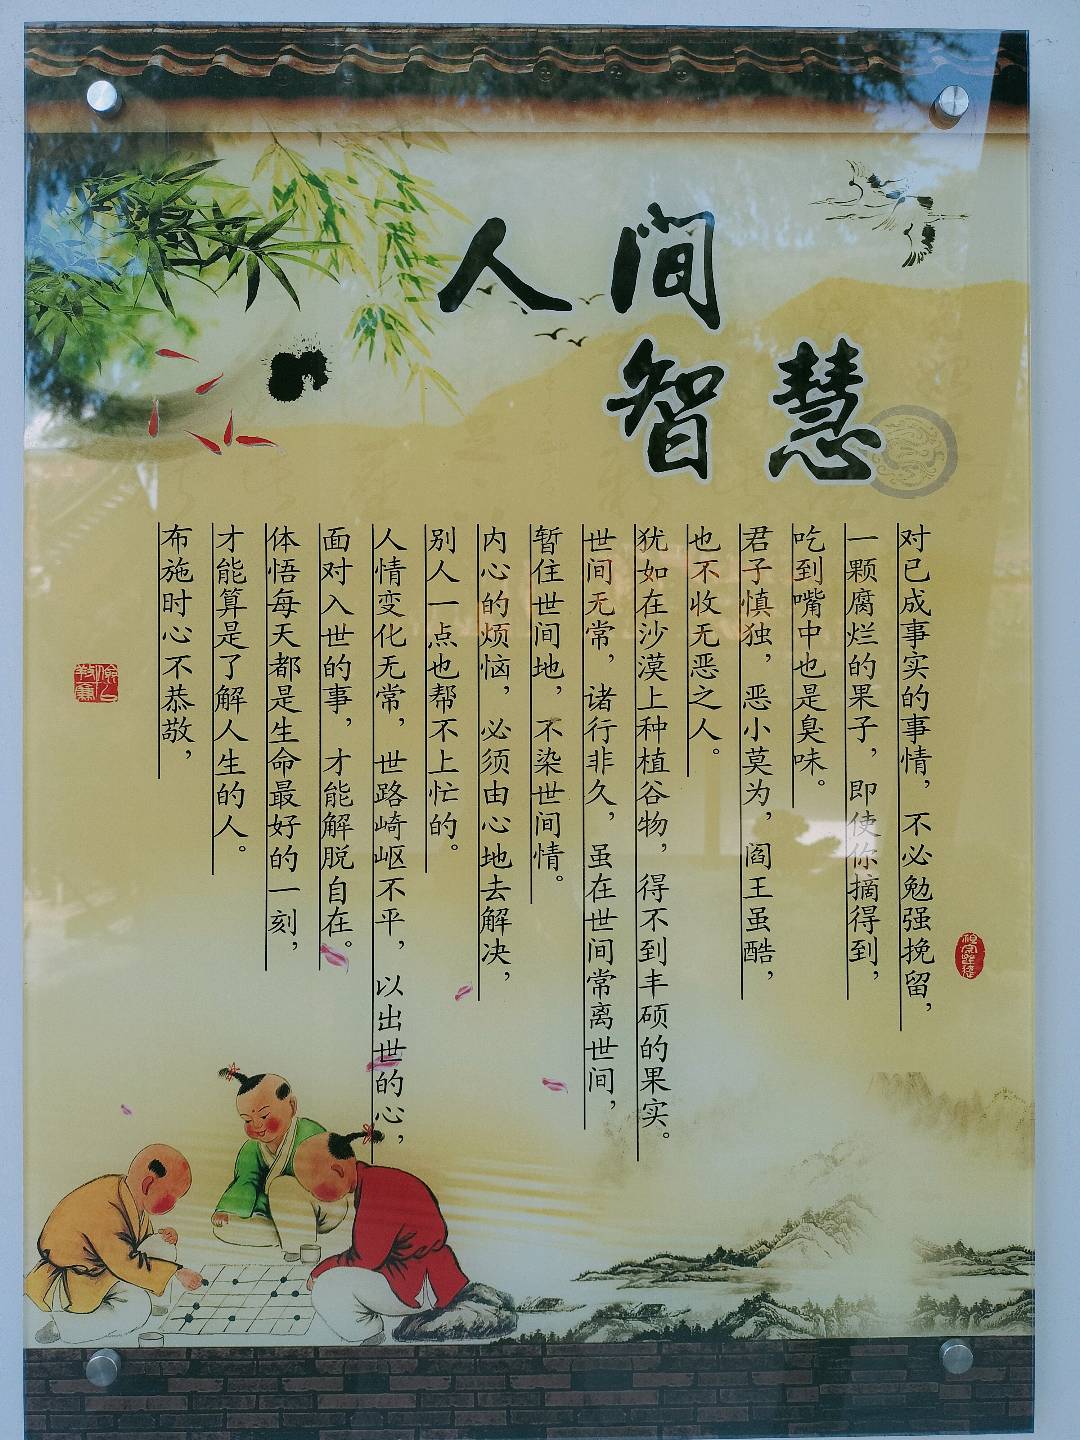 人间
智慧
对已成事实的事情，不必勉强挽留，
一颗腐烂的果子，即使你摘得到，
吃到嘴中也是臭味。
君子慎独，恶小莫为，阎王虽酷，
也不收无恶之人。
犹如在沙漠上种植谷物，得不到丰硕的果实。
世间无常，诸行非久，虽在世间常离世间，
暂住世间地，不染世间情。
内心的烦恼，必须由心地去解决，
别人一点也帮不上忙的。
人情变化无常，世路崎岖不平，以出世的心，
面对入世的事，才能解脱自在。
体悟每天都是生命最好的一刻，
才能算是了解人生的人。
布施时心不恭敬，